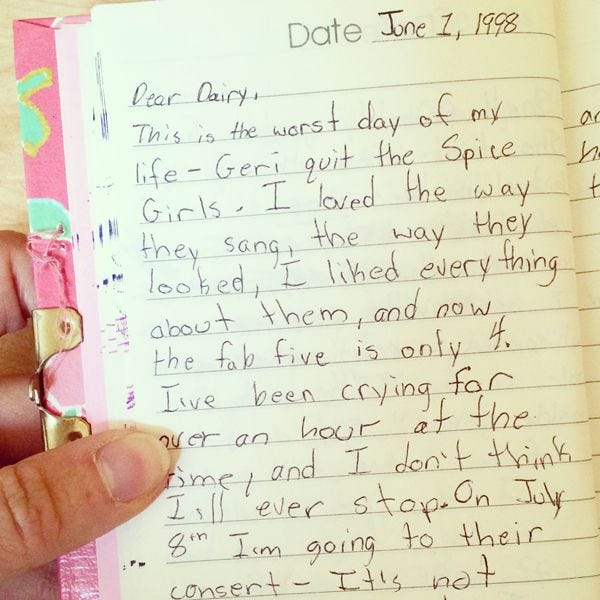 Date June 1, 1998
Dear Dairy,
This is the worst day of my
life - Geri quit the Spice
Girls. I loved the way
they sang, the way they
looked, I liked every thing
about them, and now
the fab five is only 4.
I,ve been crying for
over an hour at the
time, and I don't think
I,ll ever stop. On July
8th I,m going to their
consert - It's not